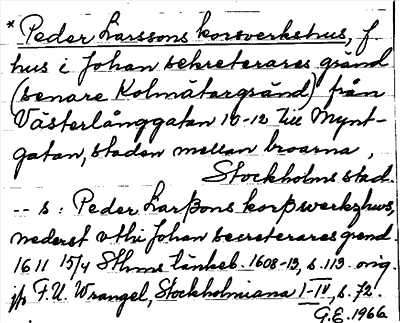 * Peder Larssons korsverkshus, f.
hus i Johan sekreterares gränd
(senare Kolmätargränd) från
Västerlånggatan 10-12 till Mynt-
gatan, staden mellan broarna,
Stockholms stad.
-- s: Peder Larßons korßwerkzhws,
nederst vthi Johan secreterares grend.
1611 15/4 Sthms tänkeb. 1608-13, s. 113. orig.
jfr F.U. Wrangel, Stockholmiana I-IV, s. 72.
G.E. 1966.